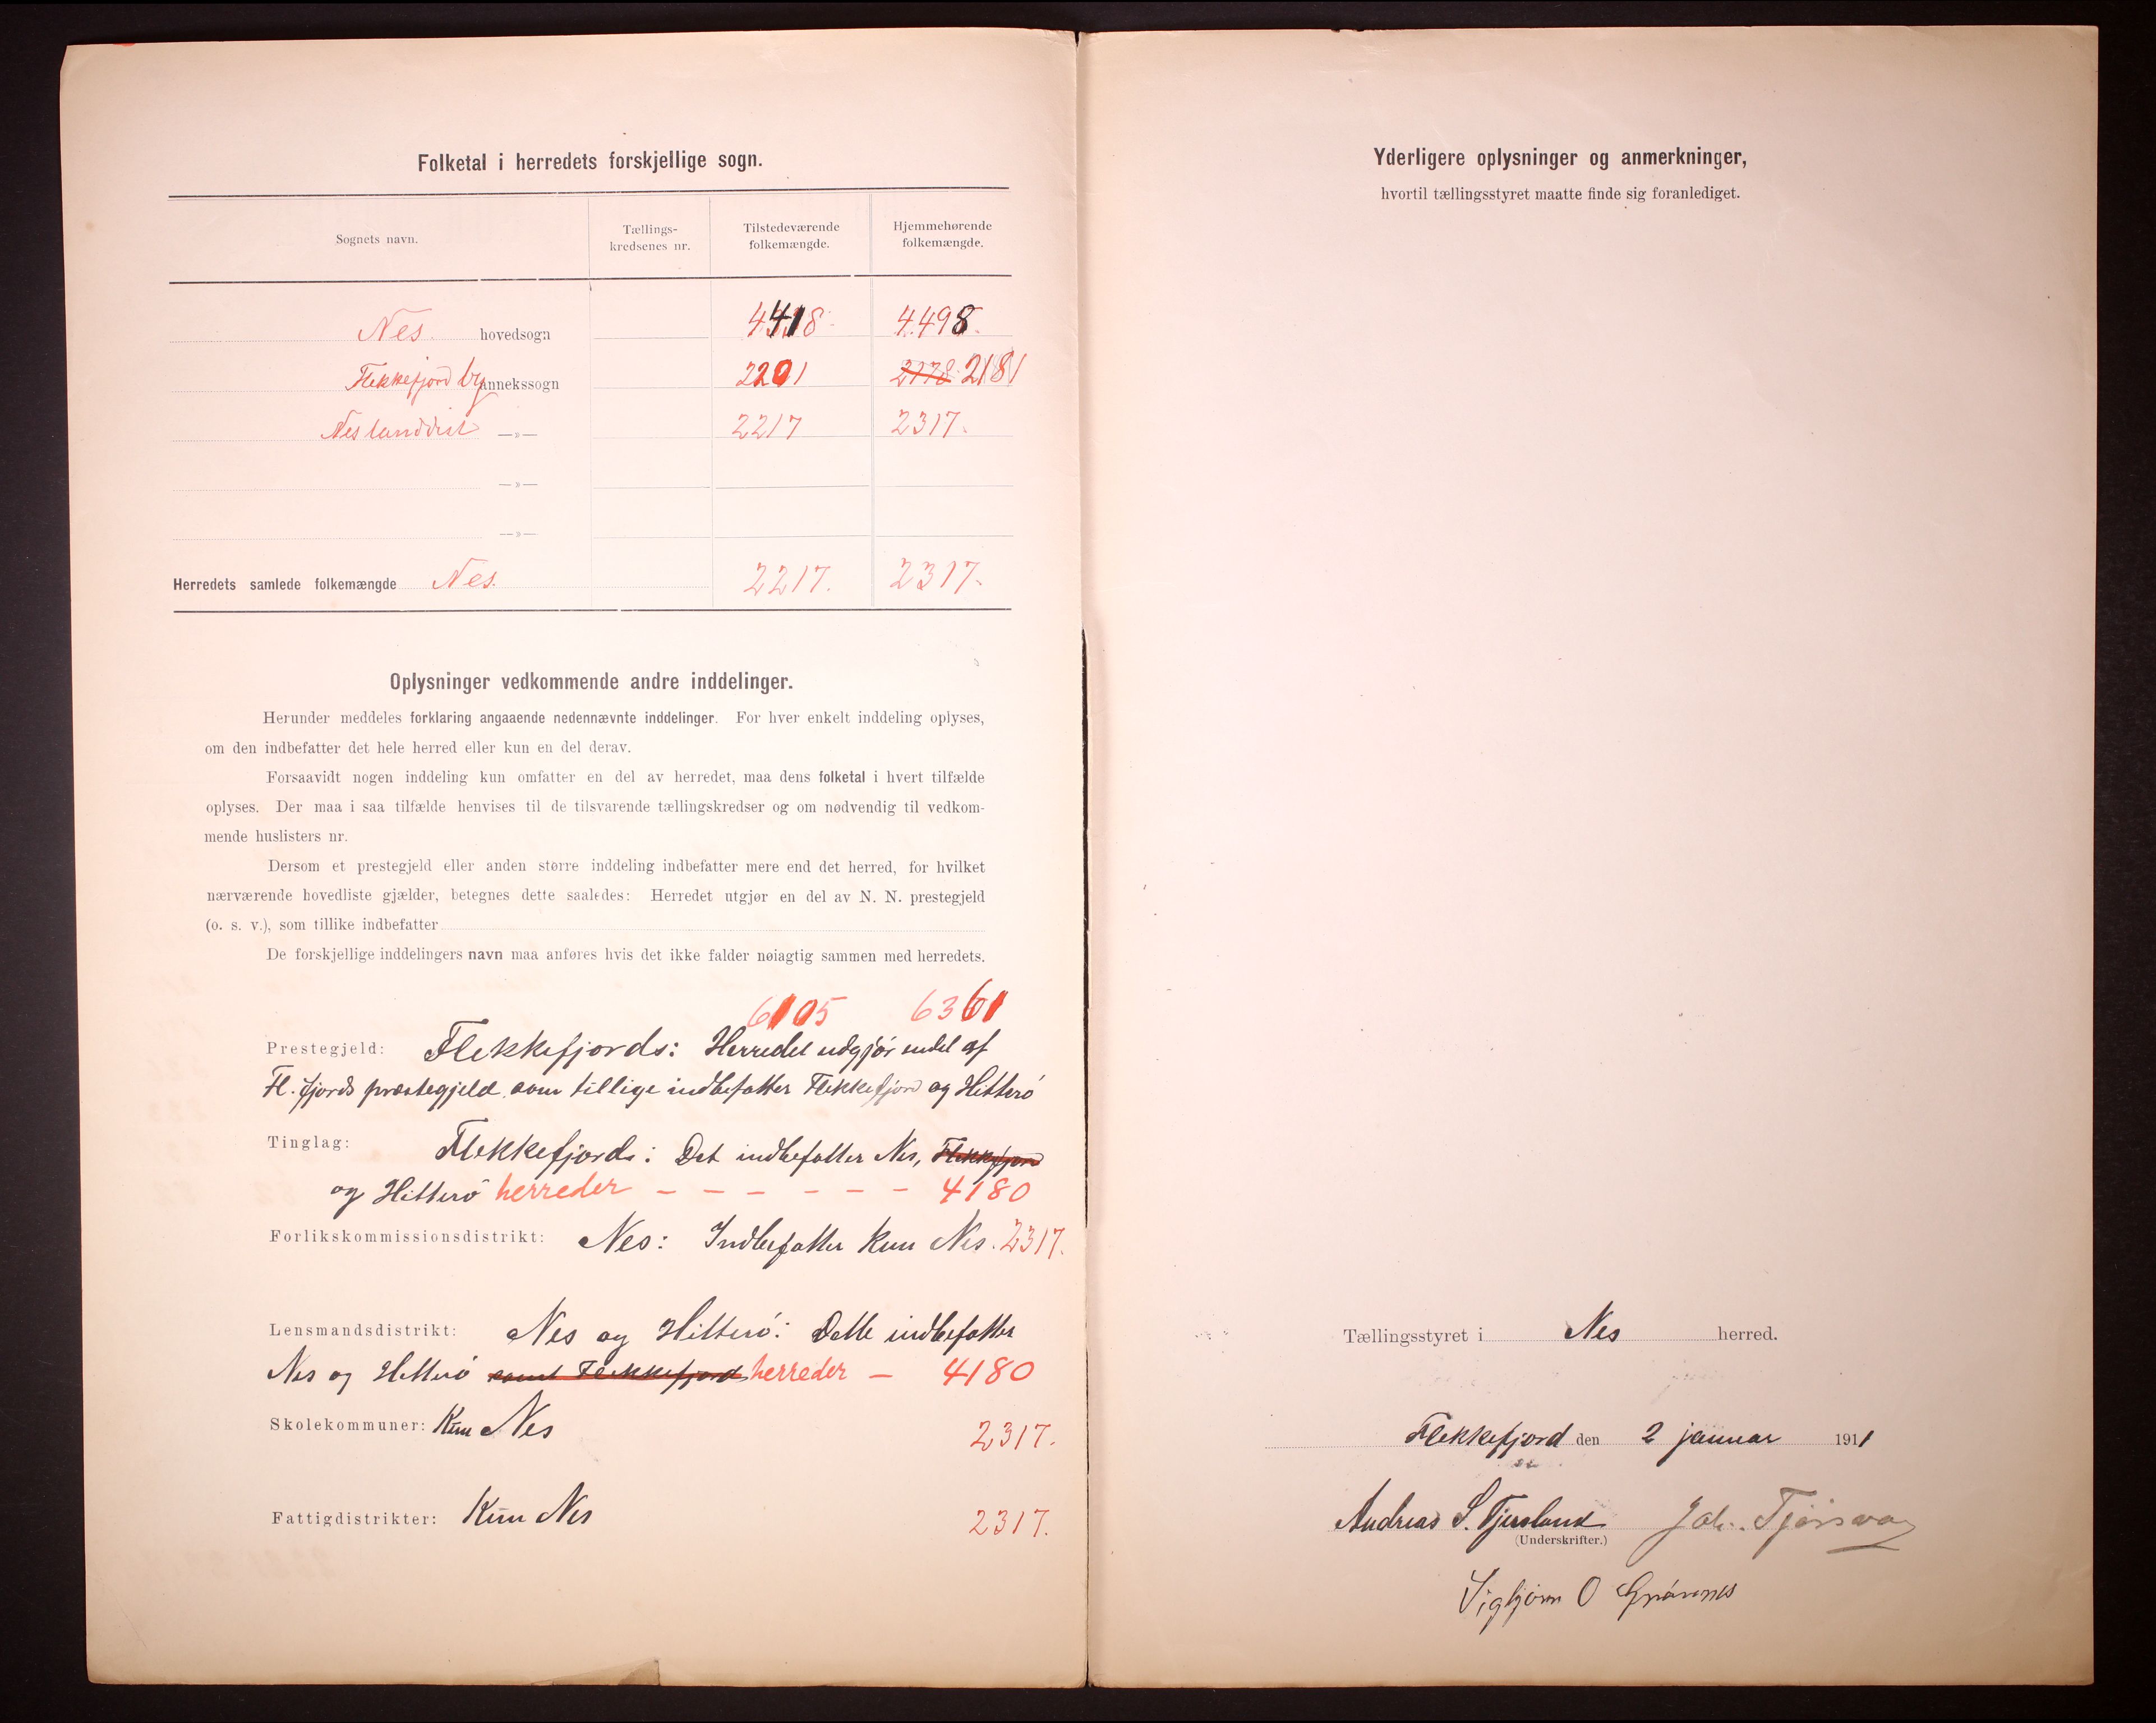 Folketal i herredets forskjellige sogn.
Sognets navn. Tællings-kredsenes nr. Tilstedeværende folkemængde. Hjemmehørende folkemængde.
Nes. hovedsogn 4418 4.498.
Flekkefjord by annekssogn 2201 2178. 2181
Nes landdist —»— 2217 2317.
—»—
—»—
Herredets samlede folkemængde Nes. 2217. 2317.
Oplysninger vedkommende andre inddelinger.
Herunder meddeles forklaring angaaende nedennævnte inddelinger. For hver enkelt inddeling oplyses,
om den indbefatter det hele herred eller kun en del derav.
Forsaavidt nogen inddeling kun omfatter en del av herredet, maa dens folketal i hvert tilfælde
oplyses. Der maa i saa tilfælde henvises til de tilsvarende tællingskredser og om nødvendig til vedkom-
mende huslisters nr.
Dersom et prestegjeld eller anden større inddeling indbefatter mere end det herred, for hvilket
nærværende hovedliste gjælder, betegnes dette saaledes: Herredet utgjør en del av N. N. prestegjeld
(o. s. v.), som tillike indbefatter
De forskjellige inddelingers navn maa anføres hvis det ikke falder nøiagtig sammen med herredets.
6105 6361
Prestegjeld: Flekkefjords: Herredet udgjør endel af
Fl. fjords præstegjeld, som tillige indbefatter Flekkefjord og Hitterö
Tinglag: Flekkefjords: Det indbefatter Nes, Flekkefjord
og Hitterö herreder - - - - - - 4180
Forlikskommissionsdistrikt: Nes: Indbefatter kun Nes. 2317.
Lensmandsdistrikt: Nes og Hitterö: Dette indbefatter
Nes og Hitterö samt Flekkefjord herreder — 4180
Skolekommuner: Kun Nes 2317.
Fattigdistrikter: Kun Nes 2317.
Yderligere oplysninger og anmerkninger,
hvortil tællingsstyret maatte finde sig foranlediget.
Tællingsstyret i Nes herred.
Flekkefjord den 2 januar 1911
Andreas S. Tjersland Joh. Tjörsvag
(Underskrifter.)
Sigbjörn O